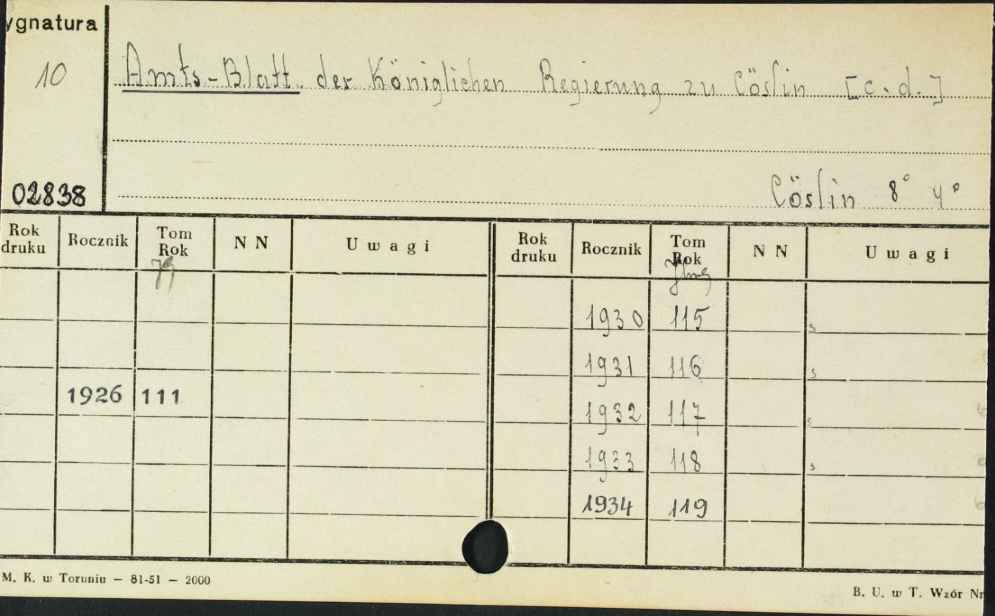 ygnatura
10 Amts-Blatt der Königlichen Regierung zu Cöslin [c.d.]
02838 Cöslin 8° 4°
Rok druku Rocznik Tom Rok N N Uwagi Rok druku Rocznik Tom Rok N N Uwagi
Jg
1930 115
1931 116
1926 111
1932 117
1933 118
1934 119
M. K. w Toruniu — 81-51 — 2000 B. U. w T. Wzór Nr